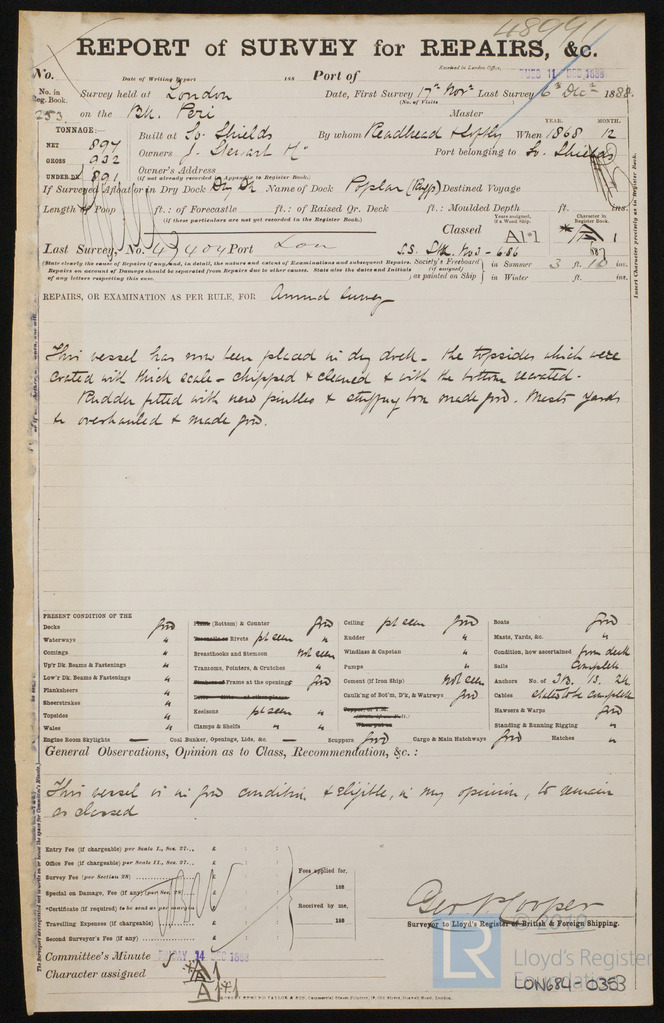 48991
REPORT of SURVEY for REPAIRS, &c.
No. Date of Writing Report 188 Port of Received in London Office, TUES 11 DEC 1888
No. in Reg. Book. Survey held at London Date, First Survey 17th Novr Last Survey 6th Decr 1888
(No. of Visits)
253 on the Bk. Peri Master
TONNAGE: YEAR. MONTH.
Built at So. Shields By whom Readhead & Softly When 1868 12
NET 897
GROSS 932 Owners J. Stewart & Co Port belonging to So. Shields
Owner's Address
UNDER DK. 891 (if not already recorded in Appendix to Register Book.)
If Surveyed Afloat or in Dry Dock Dry Dk Name of Dock Poplar Destined Voyage
Length of Poop ft.: of Forecastle ft.: of Raised Qr. Deck ft.: Moulded Depth ft. ins.
(if these particulars are not yet recorded in the Register Book.)
Years assigned, if a Wood Ship. Character in Register Book.
Classed A1 A 1
Last Survey, No. 43404 Port Lon
(State clearly the cause of Repairs if any, and, in detail, the nature and extent of Examinations and subsequent Repairs.
Repairs on account of Damage should be separated from Repairs due to other causes. State also the dates and Initials
of any letters respecting this case.
Society's Freeboard (if assigned) as painted on Ship in Summer 3 ft. 10 ins.
in Winter ft. ins.
Insert Character precisely as in Register Book.
REPAIRS, OR EXAMINATION AS PER RULE, FOR Annual Survey
This vessel has now been placed in dry dock - the topsides which were
coated with thick scale - chipped & cleaned & with the bottom recoated.
Rudder fitted with new pintles & stuffing box made good. Masts yards
&c overhauled & made good.
PRESENT CONDITION OF THE
Decks good
Waterways "
Comings "
Up'r Dk. Beams & Fastenings "
Low'r Dk. Beams & Fastenings "
Planksheers "
Sheerstrakes "
Topsides "
Wales "
Engine Room Skylights —
(Bottom) & Counter good
Rivets pt seen "
Breasthooks and Stemson Not seen
Transoms, Pointers, & Crutches "
of Frame at the openings good
Keelsons pt seen "
Clamps & Shelfs "
Coal Bunker, Openings, Lids, &c. —
Ceiling pt seen good
Rudder "
Windlass & Capstan "
Pumps "
Cement (if Iron Ship) Not seen
Caulk'ng of Bot'm, D'k, & Watrwys good
Scuppers good
Cargo & Main Hatchways good
Boats good
Masts, Yards, &c. "
Condition, how ascertained from deck
Sails Complete
Anchors No. of 3B. 1S. 2K
Cables stated to be complete
Hawsers & Warps good
Standing & Running Rigging "
Hatches "
General Observations, Opinion as to Class, Recommendation, &c.:
This vessel is in good condition & eligible, in my opinion, to remain
as classed
Entry Fee (if chargeable) per Scale I., Sec. 27... £ : :
Office Fee (if chargeable) per Scale II., Sec. 27... £ : :
Survey Fee (per Section 28) £ : :
Special on Damage, Fee (if any) (per Sec. 28) £ : :
*Certificate (if required) to be sent as per margin £ : :
Travelling Expenses (if chargeable) £ : :
Second Surveyor's Fee (if any) £ : :
Fees applied for, 188
Received by me, 188
Geo. Cooper
Surveyor to Lloyd's Register of British & Foreign Shipping.
Committee's Minute FRIDAY 14 DEC 1888
Character assigned A 1
© 2019
LR
Lloyd's Register
Foundation
LON684-0353